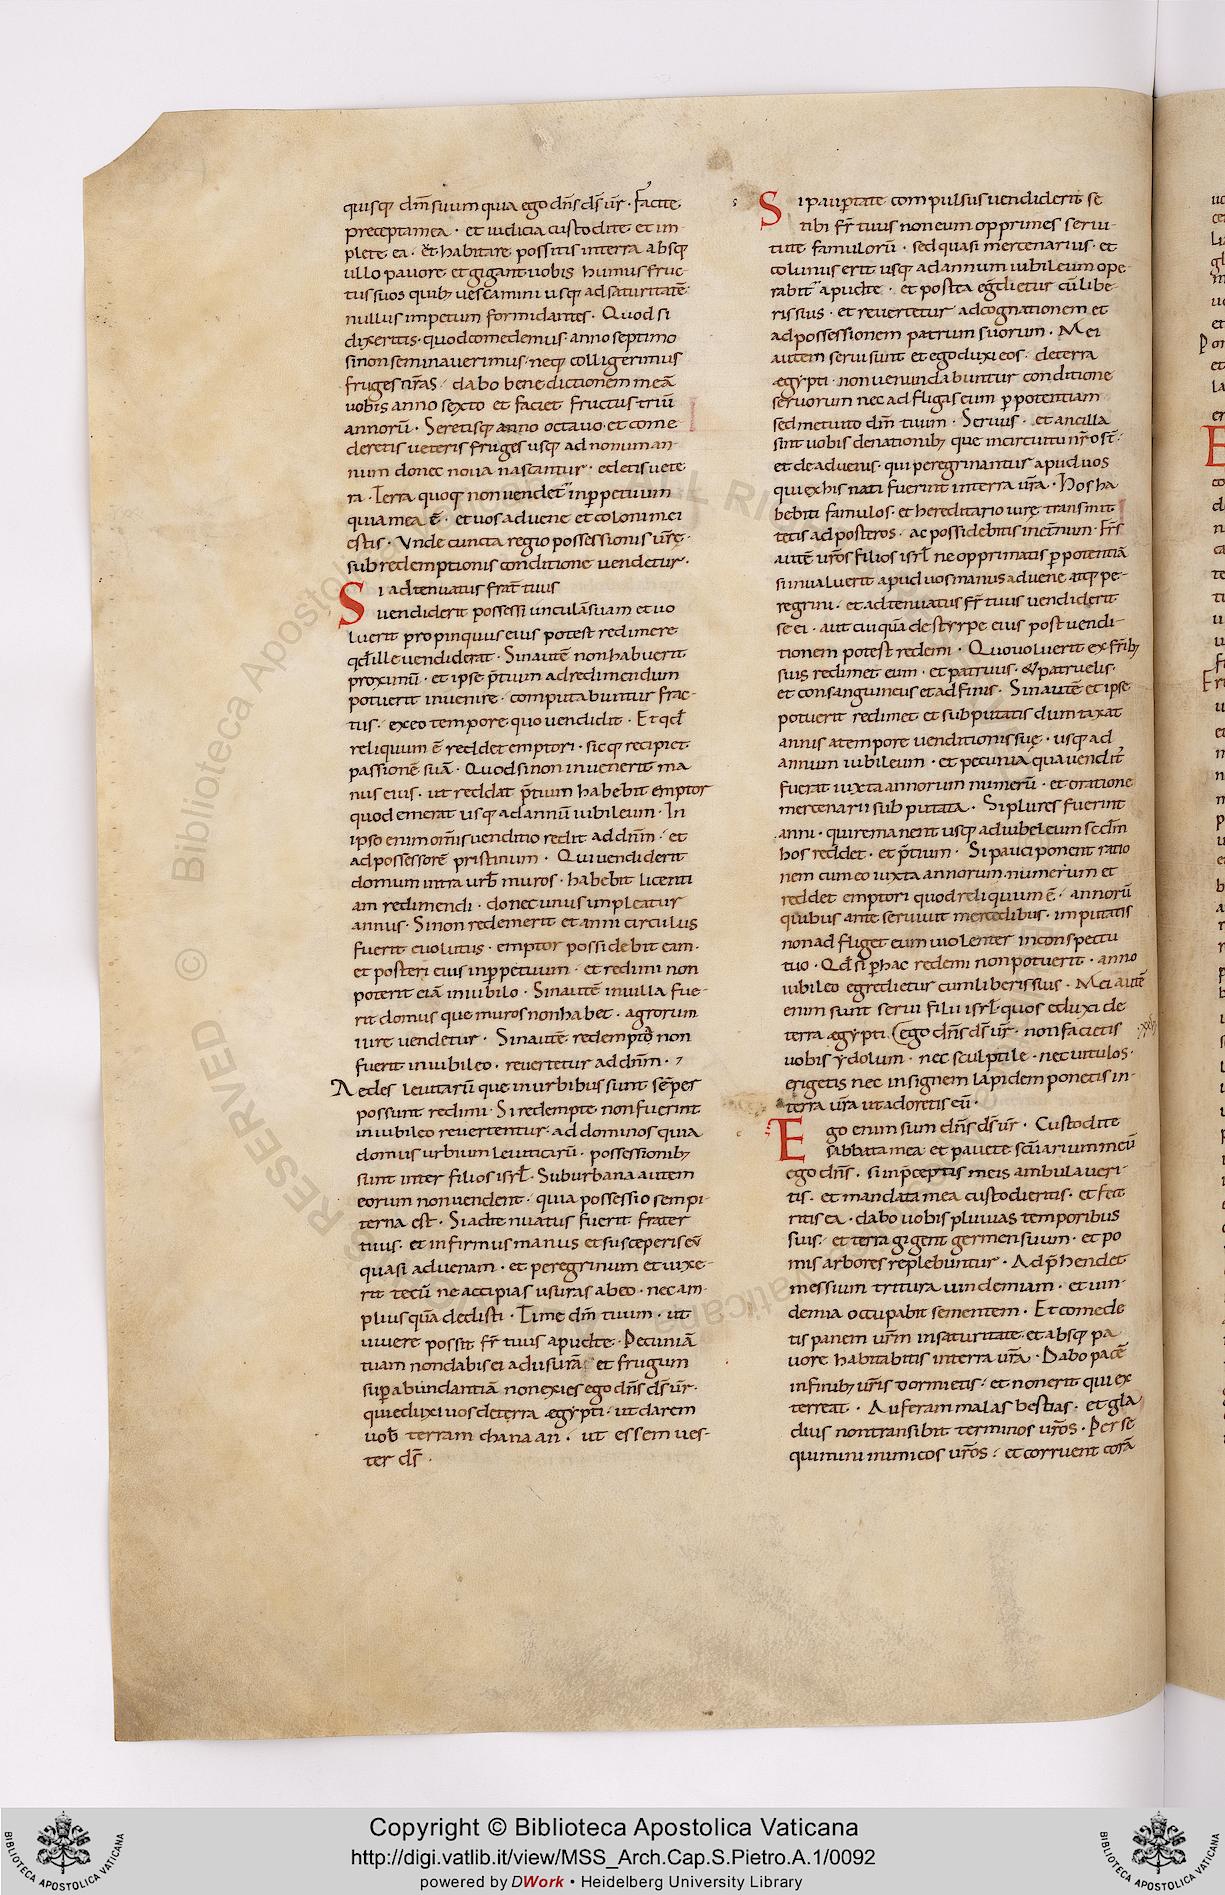 quisq; dm̄ suum quia ego dn̄s ds̄ ur̄. Facite
precepta mea. et iudicia custodite et im-
plete ea. ut habitare possitis in terra absq;
ullo pavore et gignat uobis humus fruc-
tus suos quib; uescamini usq; ad saturitatē
nullius impetum formidantes. Quod si
dixeritis. quod comedemus anno septimo
si non seminauerimus. neq; colligerimus
fruges nr̄as. dabo benedictionem meā
uobis anno sexto et faciet fructus triū
annorū. Seretisq; anno octauo. et come
deretis ueteris fruges usq; ad nonum an-
num donec noua nascantur. edetis uete
ra. Terra quoq; non uendet̃ in ꝑpetuum
quia mea ē. et uos aduene et coloni mei
estis. Vnde cuncta regio possessionis ur̄ę.
sub redemptionis conditione uendetur.
Si adtenuatus frat̃ tuus
uendiderit possessiunculā suam et uo
luerit propinquus eius potest redimere
qđ ille uendiderat. Sin autē non habuerit
proximū. et ipse p̄tium ad redimendum
potuerit inuenire. computabuntur fruc-
tus. ex eo tempore quo uendidit. Et qđ
reliquum ē reddet emptori. sicq; recipiet
passionē suā. Quod si non inuenerit ma
nus eius. ut reddat p̄tium habebit emptor
quod emerat usq; ad annū iubileum. In
ipso enim om̄is uenditio redit ad dn̄m. et
ad possessorē pristinum. Qui uendiderit
domum intra urb̄ muros. habebit licenti
am redimendi. donec unus impleatur
annus. Si non redemerit et anni circulus
fuerit euolutus. emptor possidebit eam.
et posteri eius in ꝑpetuum. et redimi non
poterit etiā in iubilo. Sin autē in uilla fue-
rit domus que muros non habet. agrorum
iure uendetur. Sin autē redempta non
fuerit in iubileo. reuertetur ad dn̄m.
Aedes leuitarū que in urbibus sunt semꝑ
possunt redimi. Si redempte non fuerint
in iubileo reuertentur. ad dominos quia
domus urbium leuiticarū. possessionib;
sunt inter filios isrl̄. Suburbana autem
eorum non uendent. quia possessio sempi-
terna est. Si adtenuatus fuerit frater
tuus. et infirmus manus et susceperis eū
quasi aduenam. et peregrinum et uixe-
rit tecū ne accipias usuras ab eo. nec am-
plius quā dedisti. Time dm̄ tuum. ut
uiuere possit fr̄ tuus apud te. Pecuniā
tuam non dabis ei ad usurā. et frugum
suꝑabundantiā non exies ego dn̄s ds̄ ur̄.
qui eduxi uos de terra ægypti. ut darem
uob̄ terram chanaan. ut essem ues-
ter ds̄.
Si pauꝑtate compulsus uendiderit se
tibi fr̄ tuus non eum opprimes serui-
tute famulorū. sed quasi mercenarius. et
colunus erit usq; ad annum iubileum ope-
rabit̃ apud te. et postea egredietur cū libe-
ris suis. et reuertetur ad cognationem et
ad possessionem patrum suorum. Mei
autem serui sunt et ego eduxi eos. de terra
ægypti. non uenundabuntur conditione
seruorum nec adfligas eum ꝑ potentiam
sed metuito dm̄ tuum. Seruus. et ancilla
sint uobis de nationib; que in circuitu nr̄o st̄.
et de aduenis. qui peregrinantur apud uos
qui ex his nati fuerint in terra ur̄a. Hos ha
bebiti famulos. et hereditario iure transmit
tetis ad posteros. ac possidebitis in et̃num. Fr̄s
autē ur̄os filios isrl̄ ne opprimatis ꝑ potentiā
si inualuerit apud uos manus aduene atq; pe-
regrini. et adtenuatus fr̄ tuus uendiderit
se ei. aut cuiquā de styrpe eius post uendi-
tionem potest redemi. Quouoluerit ex fr̄ib;
suis redimet eum. et patruus. & patruelis.
et consanguineus et adfinis. Sin autē et ipse
potuerit redimet et subputatis dumtaxat
annis a tempore uenditionis suę. usq; ad
annum iubileum. et pecunia qua uendit̃
fuerat iuxta annorum numerū. et oratione
mercenarii subputata. Si plures fuerint
anni. qui remanent usq; ad iubeleum sc̄dm̄
hos reddet. et p̄tium. Si pauci ponent ratio
nem cum eo iuxta annorum numerum et
reddet emptori quod reliquum ē. annorū
quibus ante seruiuit mercedibus. imputatis
non adfliget eum uiolenter in conspectu
tuo. Qđ si ꝑ hac redemi non potuerit. anno
iubileo egredietur cum liberis suis. Mei autē
enim sunt serui filii isrl̄. quos eduxi de
terra ægypti. ego dn̄s ds̄ ur̄. non facietis
uobis ydolum. nec sculptile. nec titulos.
erigetis nec insignem lapidem ponetis in-
terra ur̄a ut adoretis eū.
Ego enim sum dn̄s ds̄ ur̄. Custodite
sabbata mea et pauete sc̄uarium meū
ego dn̄s. si in p̄ceptis meis ambulaueri-
tis. et mandata mea custodieritis. et fece
ritis ea. dabo uobis pluuias temporibus
suis. et terra gigent germen suum. et po
mis arbores replebuntur. Adp̄hendet
messium tritura uindemiam. et uin-
demia occupabit sementem. Et comede
tis panem ur̄m in saturitate et absq; pa
uore habitabitis in terra ur̄a. Dabo pacē
in finib; ur̄is dormietis. et non erit qui ex
terreat. Auferam malas bestias. et gla
dius non transibit terminos ur̄os. Perse
quimini inimicos ur̄os. et corruent corā
Copyright © Biblioteca Apostolica Vaticana
http://digi.vatlib.it/view/MSS_Arch.Cap.S.Pietro.A.1/0092
powered by DWork • Heidelberg University Library